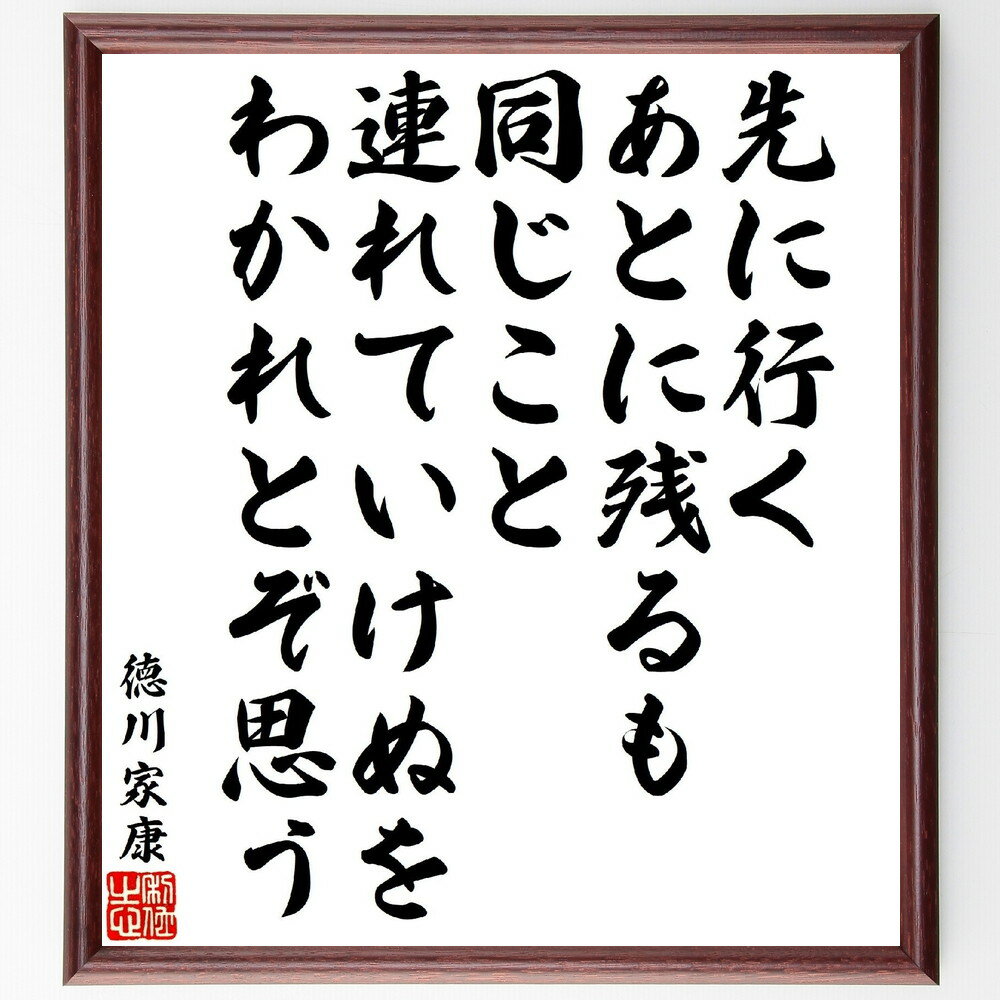 先に行く
あとに残るも
同じこと
連れていけぬを
わかれとぞ思う
徳川家康